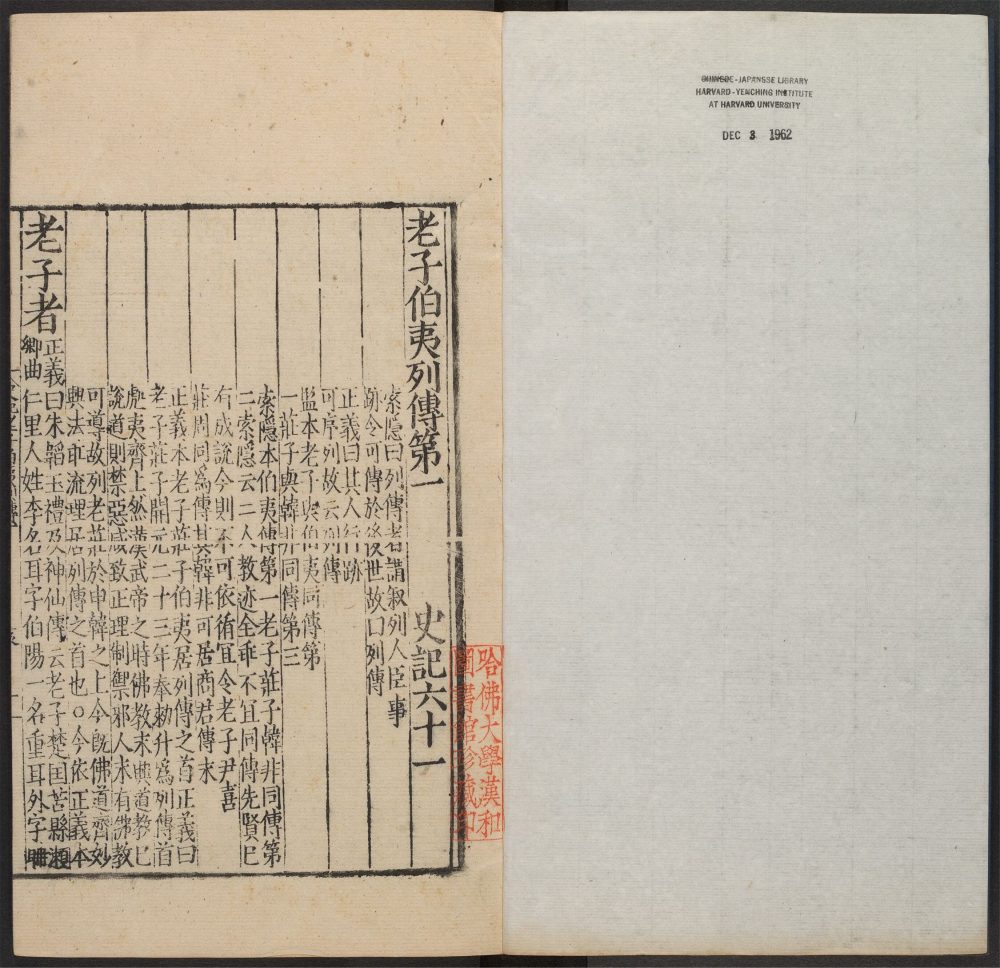 CHINESE-JAPANSSE LIBRARY
HARVARD-YENCHING INSTITUTE
AT HARVARD UNIVERSITY
DEC 3 1962
哈佛大學漢和
圖書館珍藏印
老子伯夷列傳第一 史記六十一
索隱曰列傳者謂叙列人臣事
跡令可傳於後世故曰列傳
正義曰其人行跡
可序列故云列傳
監本老子與伯夷同傳第
一莊子與韓非同傳第三
索隱本伯夷傳第一老子莊子韓非同傳第
二索隱云二人教迹全乖不宜同傳先賢已
有成說今則不可依循宜令老子尹喜
莊周同爲傳其韓非可居商君傳末
正義本老子莊子伯夷居列傳之首正義曰
老子莊子開元二十三年奉勑升爲列傳首
處夷齊上然漢武帝之時佛教未興道教已
說道則禁惡咸致正理制禦邪人未有佛教
可導故列老莊於申韓之上今旣佛道齊妙
興法乖流理居列傳之首也○今依正義本
老子者 正義曰朱韜玉禮及神仙傳云老子楚国苦縣瀨
鄉曲仁里人姓李名耳字伯陽一名重耳外字聃